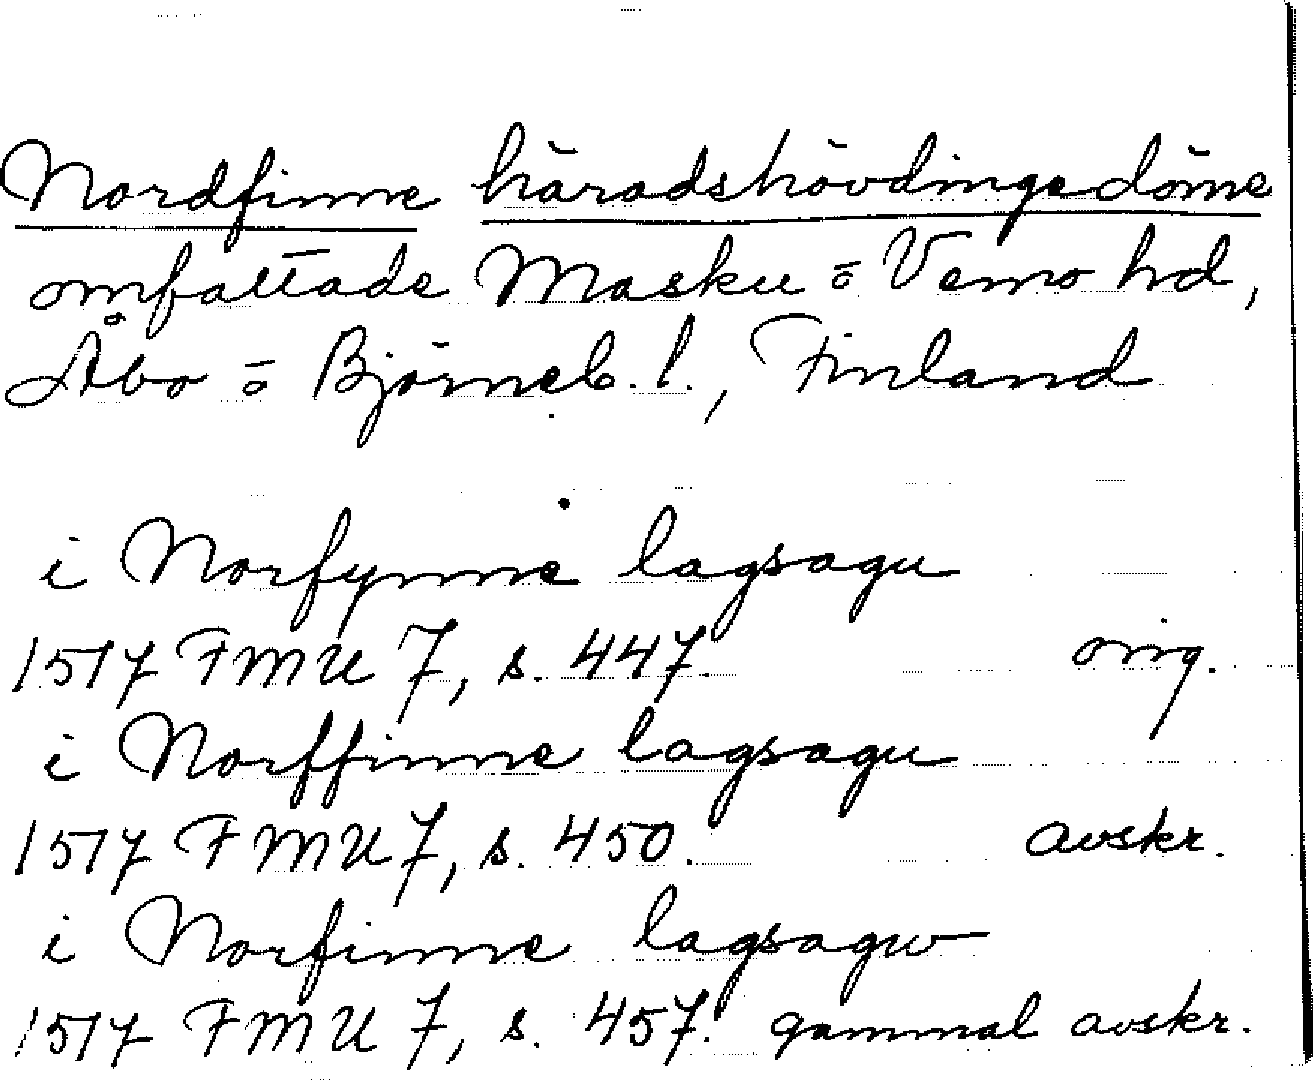 Nordfinne häradshövdingedöme
omfattade Masku o Vemo hd,
Åbo o Björneb. l., Finland
i Norfynne lagsagu
1517 FMU 7, s. 447. orig.
i Norffinne lagsagu
1517 FMU 7, s. 450. avskr.
i Norfinne lagsagw
1517 FMU 7, s. 457. gammal avskr.